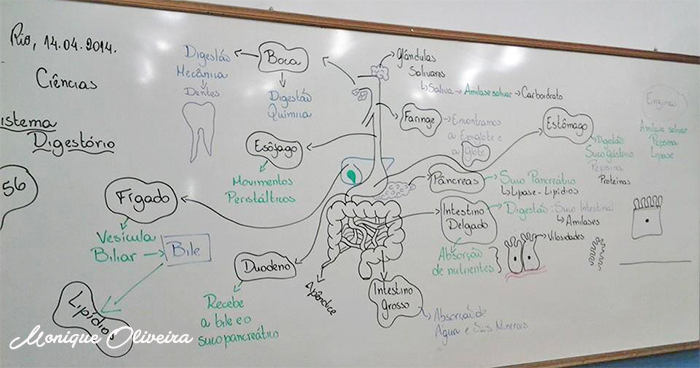 Rio, 14.04.2014.
Ciências
Sistema
Digestório
56
Digestão
Mecânica
Dentes
Boca
Digestão
Química
Glândulas
Salivares
Saliva → Amilase salivar → Carboidrato
Faringe
Encontramos
a Epiglote e
a Glote
Estômago
Digestão
Suco Gástrico
Pepsina
Proteínas
Enzimas
Amilase salivar
Pepsina
Lipase
Esôfago
Movimentos
Peristálticos
Fígado
Vesícula
Biliar → Bile
Lipídios
Pâncreas
Suco Pancreático
Lipase - Lipídios
Intestino
Delgado
Digestão: Suco Intestinal
Amilases
Vilosidades
Absorção
de nutrientes
Duodeno
Recebe
a bile e o
suco pancreático
Apêndice
Intestino
Grosso
Absorção de
Água e Sais Minerais
Monique Oliveira